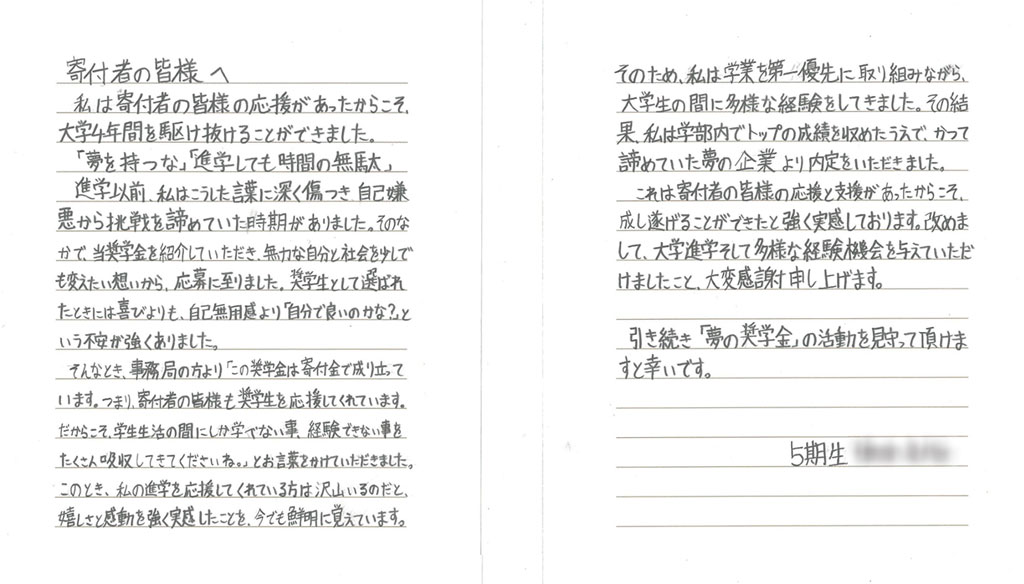 寄付者の皆様へ
私は寄付者の皆様の応援があったからこそ、
大学4年間を駆け抜けることができました。
「夢を持つな」「進学しても時間の無駄」
進学以前、私はこうした言葉に深く傷つき自己嫌
悪から挑戦を諦めていた時期がありました。そのな
かで、当奨学金を紹介していただき、無力な自分と社会を少しで
も変えたい想いから、応募に至りました。奨学生として選ばれ
たときには喜びよりも、自己無用感より「自分で良いのかな?」と
いう不安が強くありました。
そんなとき、事務局の方より「この奨学金は寄付金で成り立って
います。つまり、寄付者の皆様も奨学生を応援してくれています。
だからこそ、学生生活の間にしか学べない事、経験できない事を
たくさん吸収してきてくださいね。」とお言葉をかけていただきました。
このとき、私の進学を応援してくれている方は沢山いるのだと、
嬉しさと感動を強く実感したことを、今でも鮮明に覚えています。
そのため、私は学業を第一優先に取り組みながら、
大学生の間に多様な経験をしてきました。その結
果、私は学部内でトップの成績を収めたうえで、かつて
諦めていた夢の企業より内定をいただきました。
これは寄付者の皆様の応援と支援があったからこそ、
成し遂げることができたと強く実感しております。改めま
して、大学進学そして多様な経験機会を与えていただ
けましたこと、大変感謝申し上げます。
引き続き「夢の奨学金」の活動を見守って頂けま
すと幸いです。
5期生